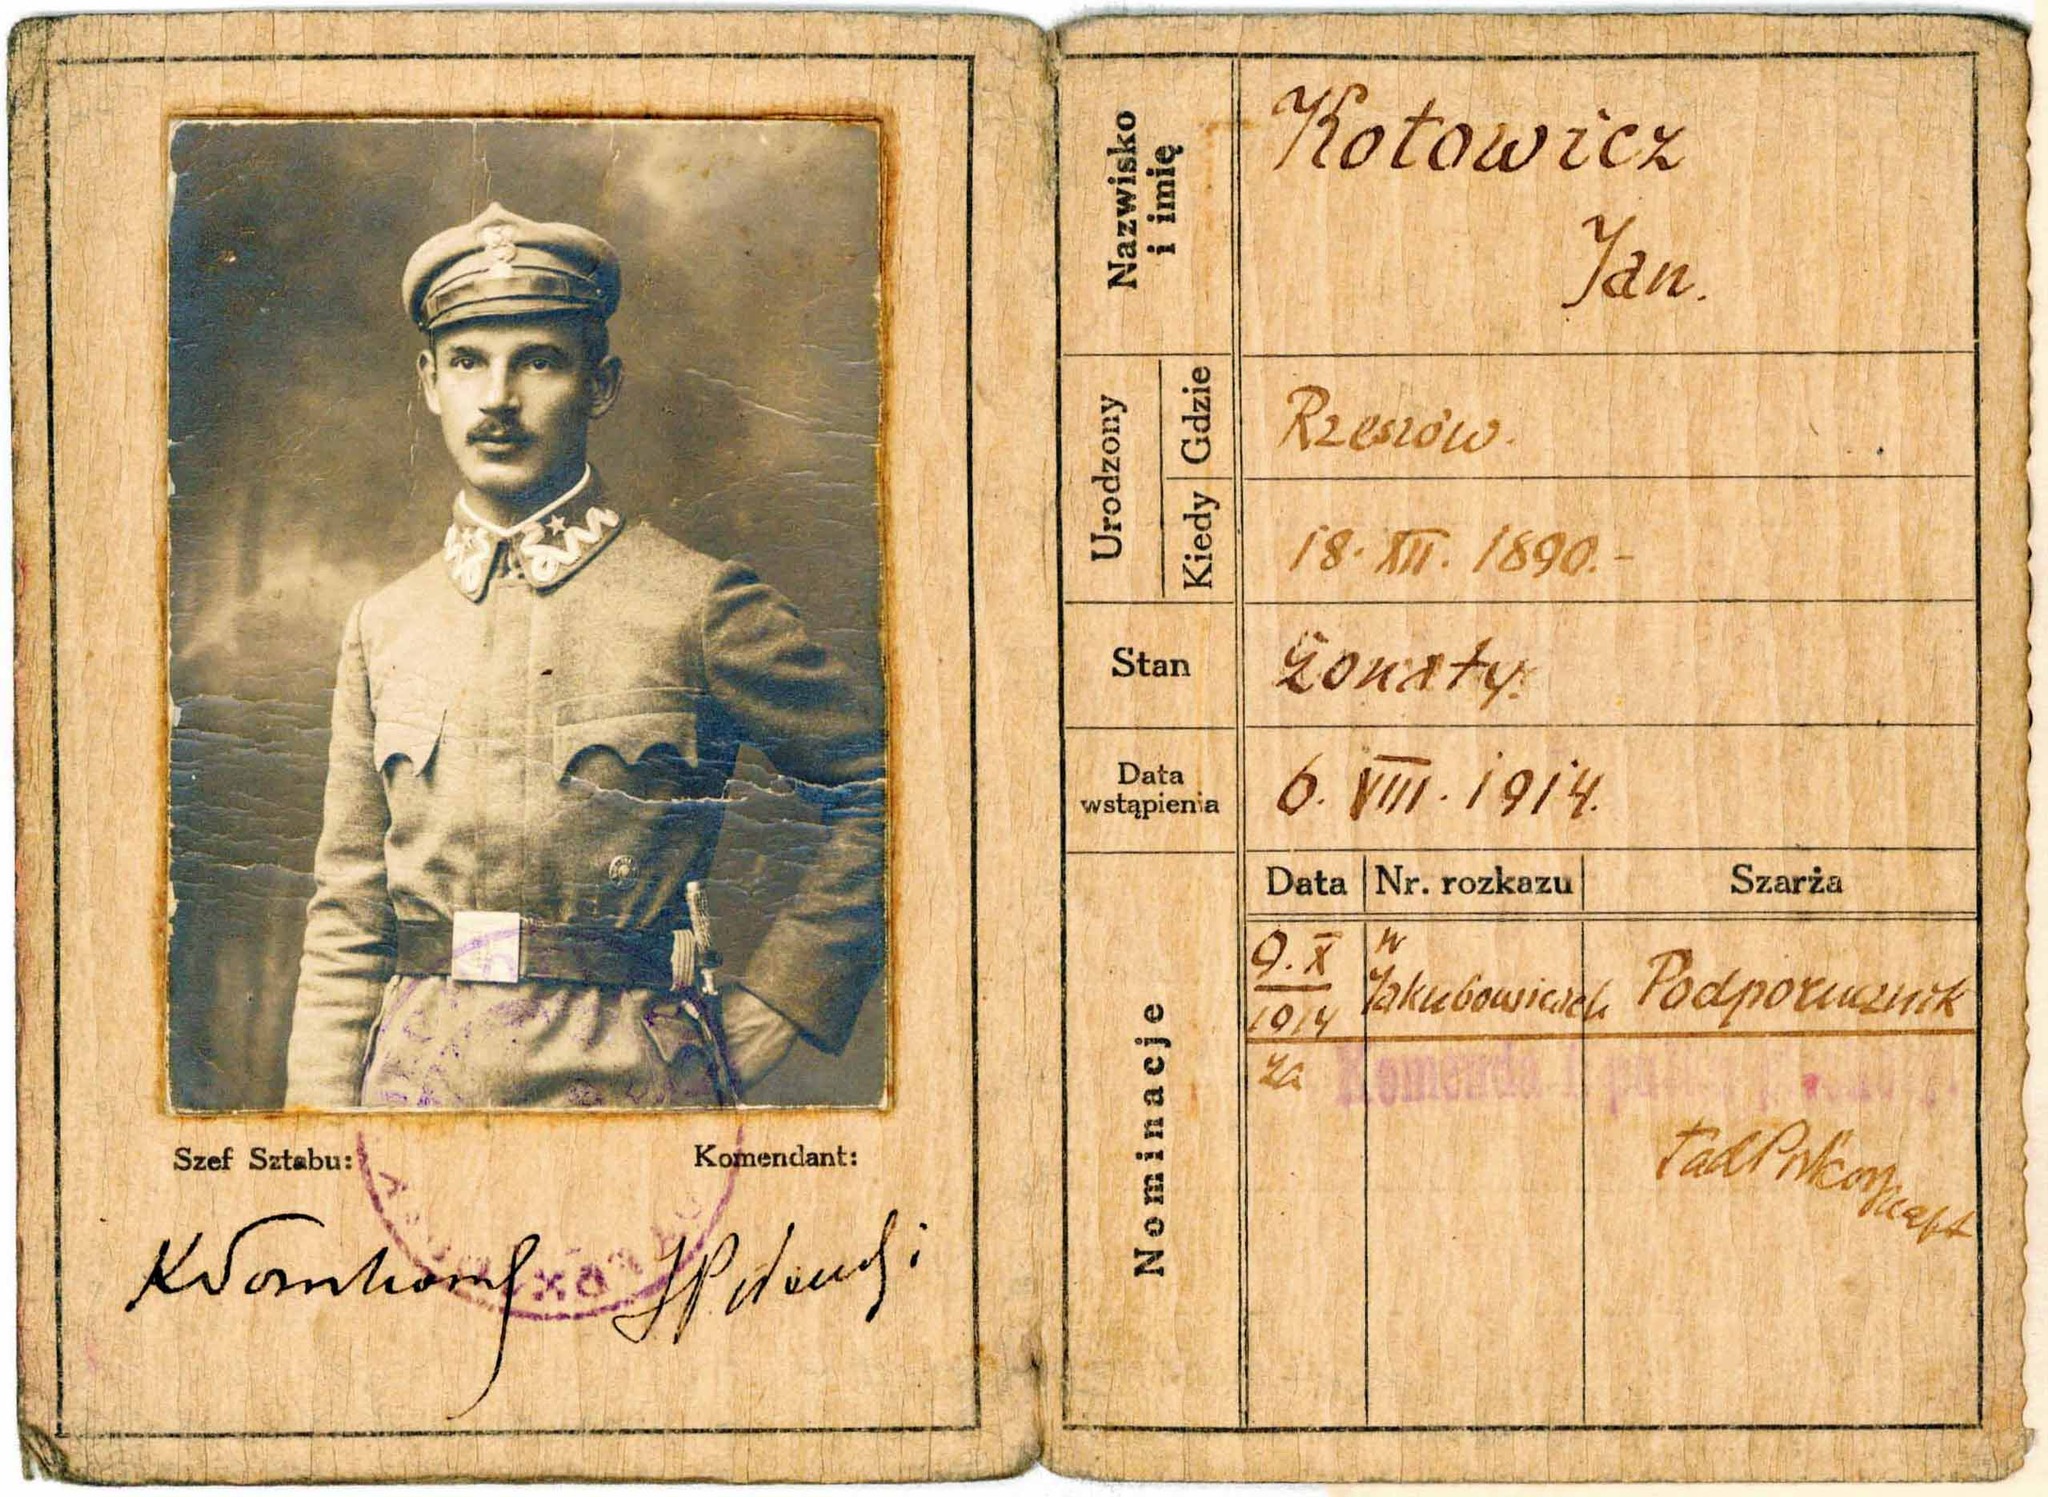 Szef Sztabu:
Komendant:
Nazwisko
i imię
Kotowicz
Jan.
Urodzony
Gdzie
Rzeszów.
Kiedy
18. XII. 1890.-
Stan
żonaty.
Data
wstąpienia
6. VIII. 1914.
Nominacje
Data
Nr. rozkazu
Szarża
9. X
1914
w
Jakubowicach
Podporucznik
za
Komenda